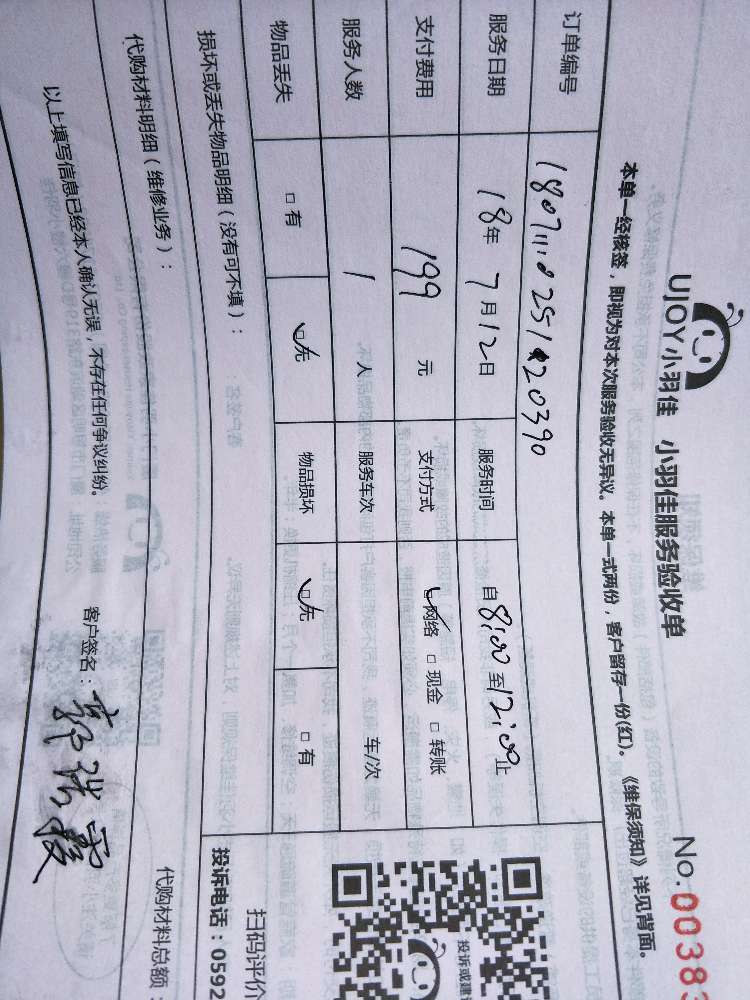 UJOY小羽佳 小羽佳服务验收单
No.0038
本单一经核签，即视为对本次服务验收无异议。本单一式两份，客户留存一份(红)。《维保须知》详见背面。
订单编号
服务日期 18年7月12日 服务时间 自8:00至12:00止
支付费用 199 元 支付方式 网络 □现金 □转账
服务人数 1 人 服务车次 车/次
物品丢失 □有 □无 物品损坏 □无 □有
损坏或丢失物品明细（没有可不填）：
代购材料明细（维修业务）：
代购材料总额：
以上填写信息已经本人确认无误，不存在任何争议纠纷。
客户签名：
投诉或建议
扫码评价
投诉电话：0592